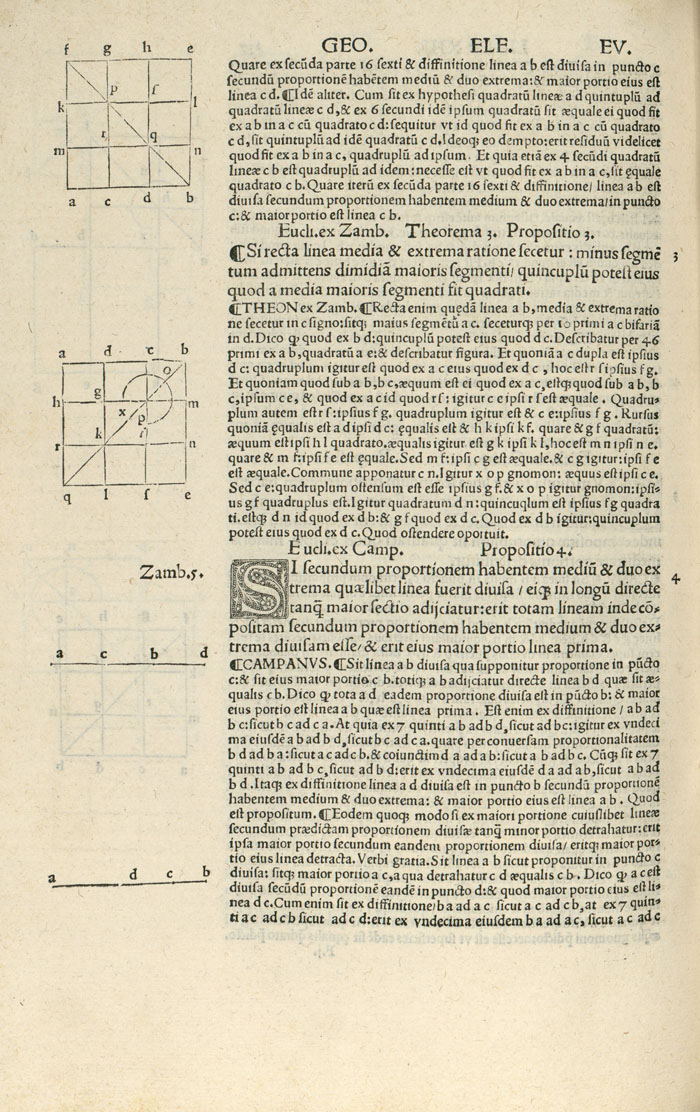 GEO. ELE. EV.
Quare ex secūda parte 16 sexti & diffinitione linea a b est diuisa in puncto c
secundū proportionē habētem mediū & duo extrema: & maior portio eius est
linea c d. ¶Idē aliter. Cum sit ex hypothesi quadratū lineæ a d quintuplū ad
quadratū lineæ c d, & ex 6 secundi idē ipsum quadratū sit æquale ei quod fit
ex a b in a c cū quadrato c d: sequitur vt id quod fit ex a b in a c cū quadrato
c d, sit quintuplū ad idē quadratū c d. Ideoqꝫ eo dempto: erit residuū videlicet
quod fit ex a b in a c, quadruplū ad ipsum. Et quia etiā ex 4 secūdi quadratū
lineæ c b est quadruplū ad idem: necesse est vt quod fit ex a b in a c, sit ęquale
quadrato c b. Quare iterū ex secūda parte 16 sexti & diffinitione/ linea a b est
diuisa secundum proportionem habentem medium & duo extrema/in puncto
c: & maior portio est linea c b.
Eucli. ex Zamb. Theorema 3. Propositio 3.
¶Si recta linea media & extrema ratione secetur: minus segmē 3
tum admittens dimidiā maioris segmenti/ quincuplū potest eius
quod a media maioris segmenti fit quadrati.
¶THEON ex Zamb. ¶Recta enim quędā linea a b, media & extrema ratio
ne secetur in c signo: sitqꝫ maius segmētū a c. seceturqꝫ per 10 primi a c bifariā
in d. Dico ꝙ quod ex b d: quincuplū potest eius quod d c. Describatur per 46
primi ex a b, quadratū a e: & describatur figura. Et quoniā a c dupla est ipsius
d c: quadruplum igitur est quod ex a c eius quod ex d c, hoc est r s ipsius f g.
Et quoniam quod sub a b, b c, æquum est ei quod ex a c, estqꝫ quod sub a b, b
c, ipsum c e, & quod ex a c id quod r s: igitur c e ipsi r s est æquale. Quadru=
plum autem est r s: ipsius f g. quadruplum igitur est & c e: ipsius f g. Rursus
quoniā ęqualis est a d ipsi d c: ęqualis est & h k ipsi k f. quare & g f quadratū:
æquum est ipsi h l quadrato. æqualis igitur est g k ipsi k l, hoc est m n ipsi n e.
quare & m f: ipsi f e est ęquale. Sed m f: ipsi c g est æquale. & c g igitur: ipsi f e
est æquale. Commune apponatur c n. Igitur x o p gnomon: æquus est ipsi c e.
Sed c e: quadruplum ostensum est esse ipsius g f. & x o p igitur gnomon: ipsi=
us g f quadruplus est. Igitur quadratum d n: quincuqlum est ipsius f g quadra
ti. estqꝫ d n id quod ex d b: & g f quod ex d c. Quod ex d b igitur: quincuplum
potest eius quod ex d c. Quod ostendere oportuit.
Eucli. ex Camp. Propositio 4.
Zamb. 5.
SI secundum proportionem habentem mediū & duo ex 4
trema quælibet linea fuerit diuisa / eiqꝫ in longū directe
tanqꝫ maior sectio adijciatur: erit totam lineam inde cō=
positam secundum proportionem habentem medium & duo ex=
trema diuisam esse/ & erit eius maior portio linea prima.
¶CAMPANVS. ¶Sit linea a b diuisa qua supponitur proportione in pūcto
c: & sit eius maior portio c b. totiqꝫ a b adijciatur directe linea b d quæ sit æ=
qualis c b. Dico ꝙ tota a d eadem proportione diuisa est in pūcto b: & maior
eius portio est linea a b quæ est linea prima. Est enim ex diffinitione / a b ad
b c: sicut b c ad c a. At quia ex 7 quinti a b ad b d, sicut ad b c: igitur ex vndeci
ma eiusdē a b ad b d, sicut b c ad c a. quare per conuersam proportionalitatem
b d ad b a: sicut a c ad c b. & coiunctim d a ad a b: sicut a b ad b c. Cūqꝫ sit ex 7
quinti a b ad b c, sicut ad b d: erit ex vndecima eiusdē d a ad a b, sicut a b ad
b d. Itaqꝫ ex diffinitione linea a d diuisa est in puncto b secundū proportionē
habentem medium & duo extrema: & maior portio eius est linea a b. Quod
est propositum. ¶Eodem quoqꝫ modo si ex maiori portione cuiuslibet lineæ
secundum prædictam proportionem diuisæ tanqꝫ minor portio detrahatur: erit
ipsa maior portio secundum eandem proportionem diuisa/ eritqꝫ maior por=
tio eius linea detracta. Verbi gratia. Sit linea a b sicut proponitur in puncto c
diuisa: sitqꝫ maior portio a c, a qua detrahatur c d æqualis c b. Dico ꝙ a c est
diuisa secūdū proportionē eandē in puncto d: & quod maior portio eius est li=
nea d c. Cum enim sit ex diffinitione b a ad a c sicut a c ad c b, at ex 7 quin=
ti a c ad c b sicut ad c d: erit ex vndecima eiusdem b a ad a c, sicut a c ad c
f g h e
p s
k l
r q
m n
a c d b
a d c b
o
g
h m
x p
k
r n
q l s e
a c b d
a d c b